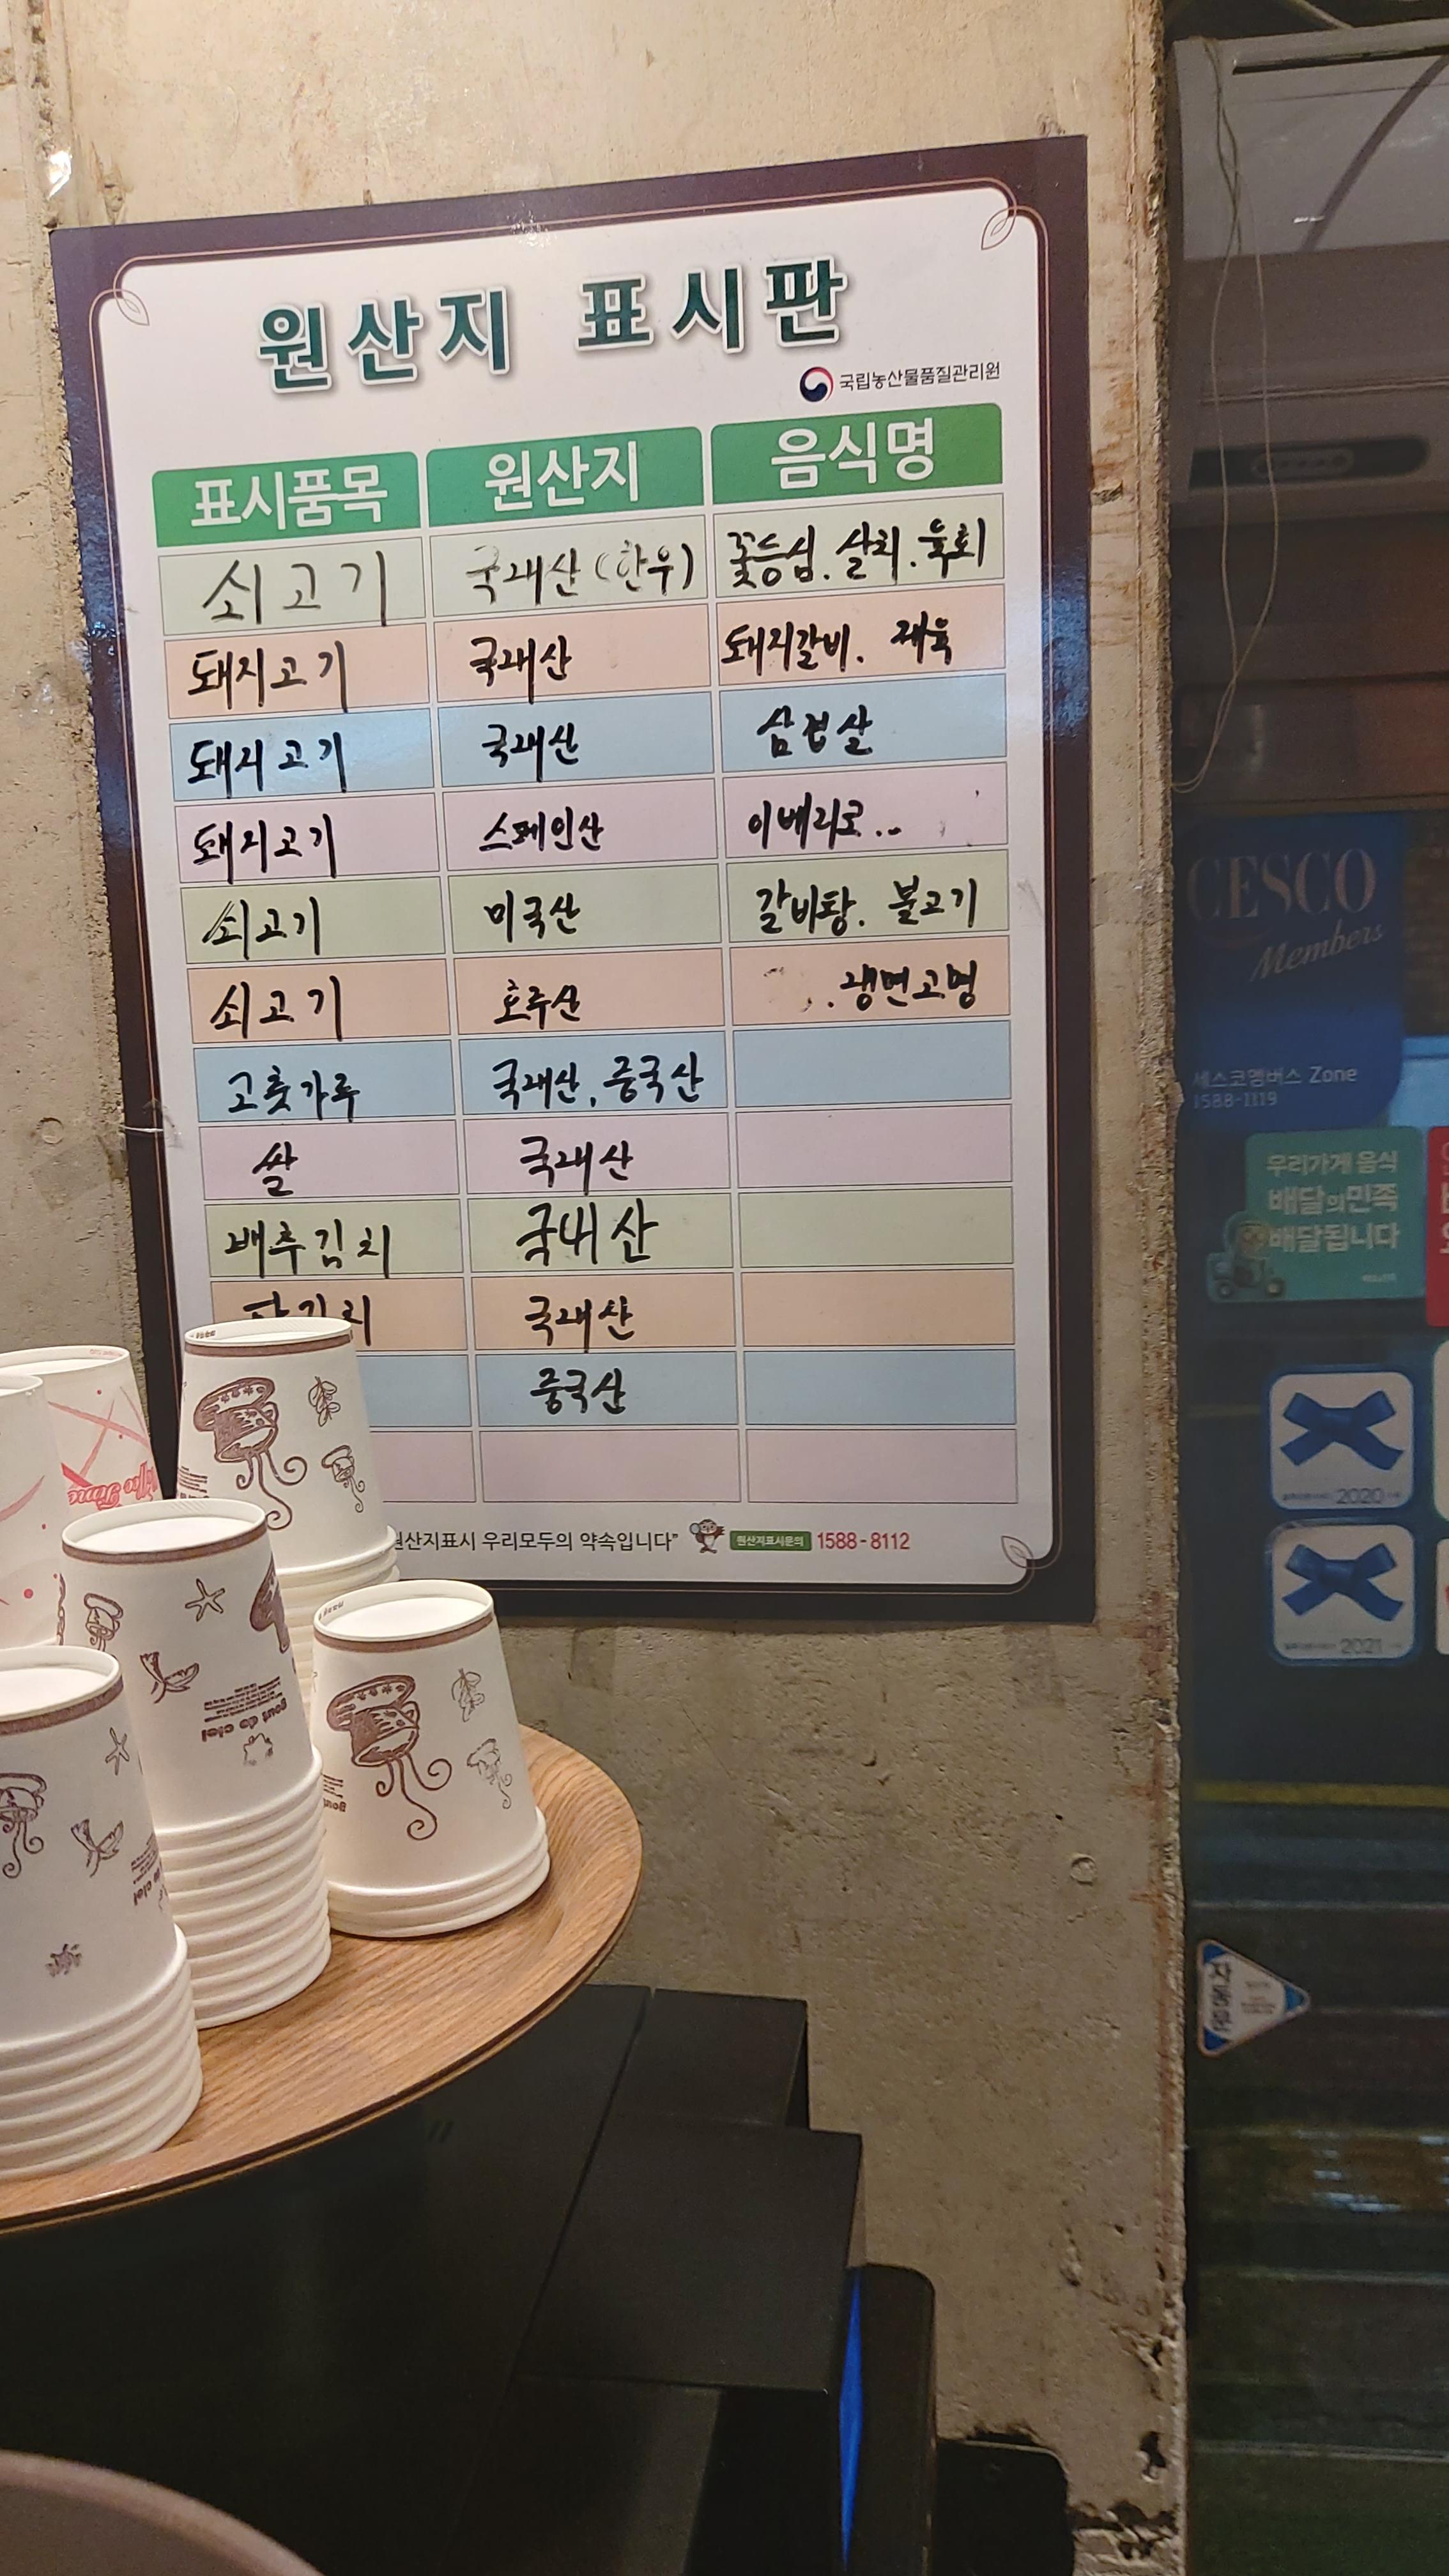 원산지 표시판
국립농산물품질관리원
표시품목 원산지 음식명
쇠고기 국내산(한우) 꽃등심. 살치. 육회
돼지고기 국내산 돼지갈비. 제육
돼지고기 국내산 삼겹살
돼지고기 스페인산 이베리코..
쇠고기 미국산 갈비탕. 불고기
쇠고기 호주산 .냉면고명
고춧가루 국내산, 중국산
쌀 국내산
배추김치 국내산
국내산
중국산
원산지표시 우리모두의 약속입니다" 원산지표시문의 1588-8112
CESCO
Members
세스코멤버스 Zone
1588-1119
우리가게 음식
배달의민족
배달됩니다
2020
2021
The Time
gout de ciel